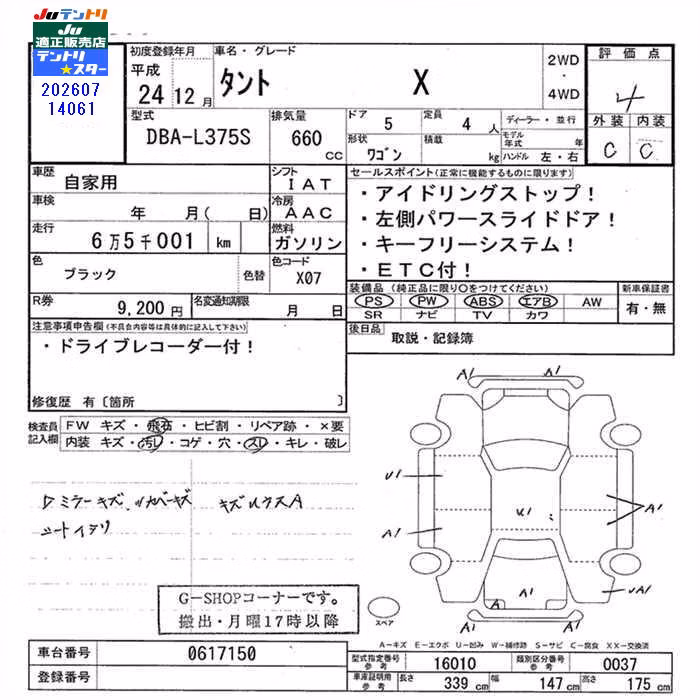 Juテントリ
Ju
適正販売店
テントリ
★スター
202607
14061
初度登録年月 車名・グレード 評価点
平成
24 12月 タント X
2WD
・
4WD
4
外装 内装
C C
型式 排気量 ドア 定員 ディーラー・並行
DBA-L375S 660 CC 5 4 人
形状 積載 モデル年式 年
ワゴン kg ハンドル 左・右
車歴 自家用 シフト IAT
車検 年 月( 日) 冷房 AAC
走行 6万5千001 km 燃料 ガソリン
色 ブラック 色替 色コード X07
R券 9,200円 名変通知期限 月 日
セールスポイント(正常に機能するものに限ります)
・アイドリングストップ!
・左側パワースライドドア!
・キーフリーシステム!
・ETC付!
装備品(純正品に限り○をつけてください) 新車保証書
PS PW ABS エアB AW 有・無
SR ナビ TV カワ
後日品 取説・記録簿
注意事項申告欄(不具合内容等は具体的に記入して下さい)
・ドライブレコーダー付!
修復歴 有〔箇所 〕
検査員記入欄
FW キズ・飛石・ヒビ割・リペア跡・×要
内装 キズ・汚レ・コゲ・穴・スレ・キレ・破レ
A1 A1
U1 U1 A1
A1
A1 UA1
A1 A1
スペア
G-SHOPコーナーです。
搬出・月曜17時以降
A-キズ E-エクボ U-凹み W-補修跡 S-サビ C-腐食 XX-交換済
車台番号 0617150
登録番号
型式指定番号 参考 16010 類別区分番号 参考 0037
車庫証明用 参考 長さ 339 cm 幅 147 cm 高さ 175 cm